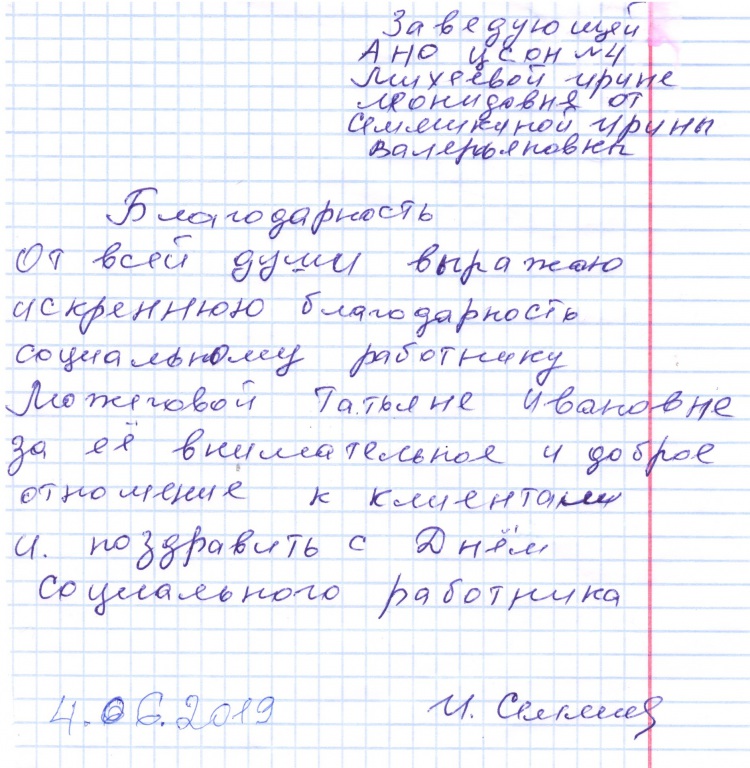 Заведующей
АНО ЦСОН №4
Михеевой Ирине
Леонидовне от
Семяшкиной Ирины
Валерьяновны
Благодарность
От всей души выражаю
искреннюю благодарность
социальному работнику
Можеговой Татьяне Ивановне
за её внимательное и доброе
отношение к клиентам
и. поздравить с Днём
социального работника
4.06.2019 И. Семяш